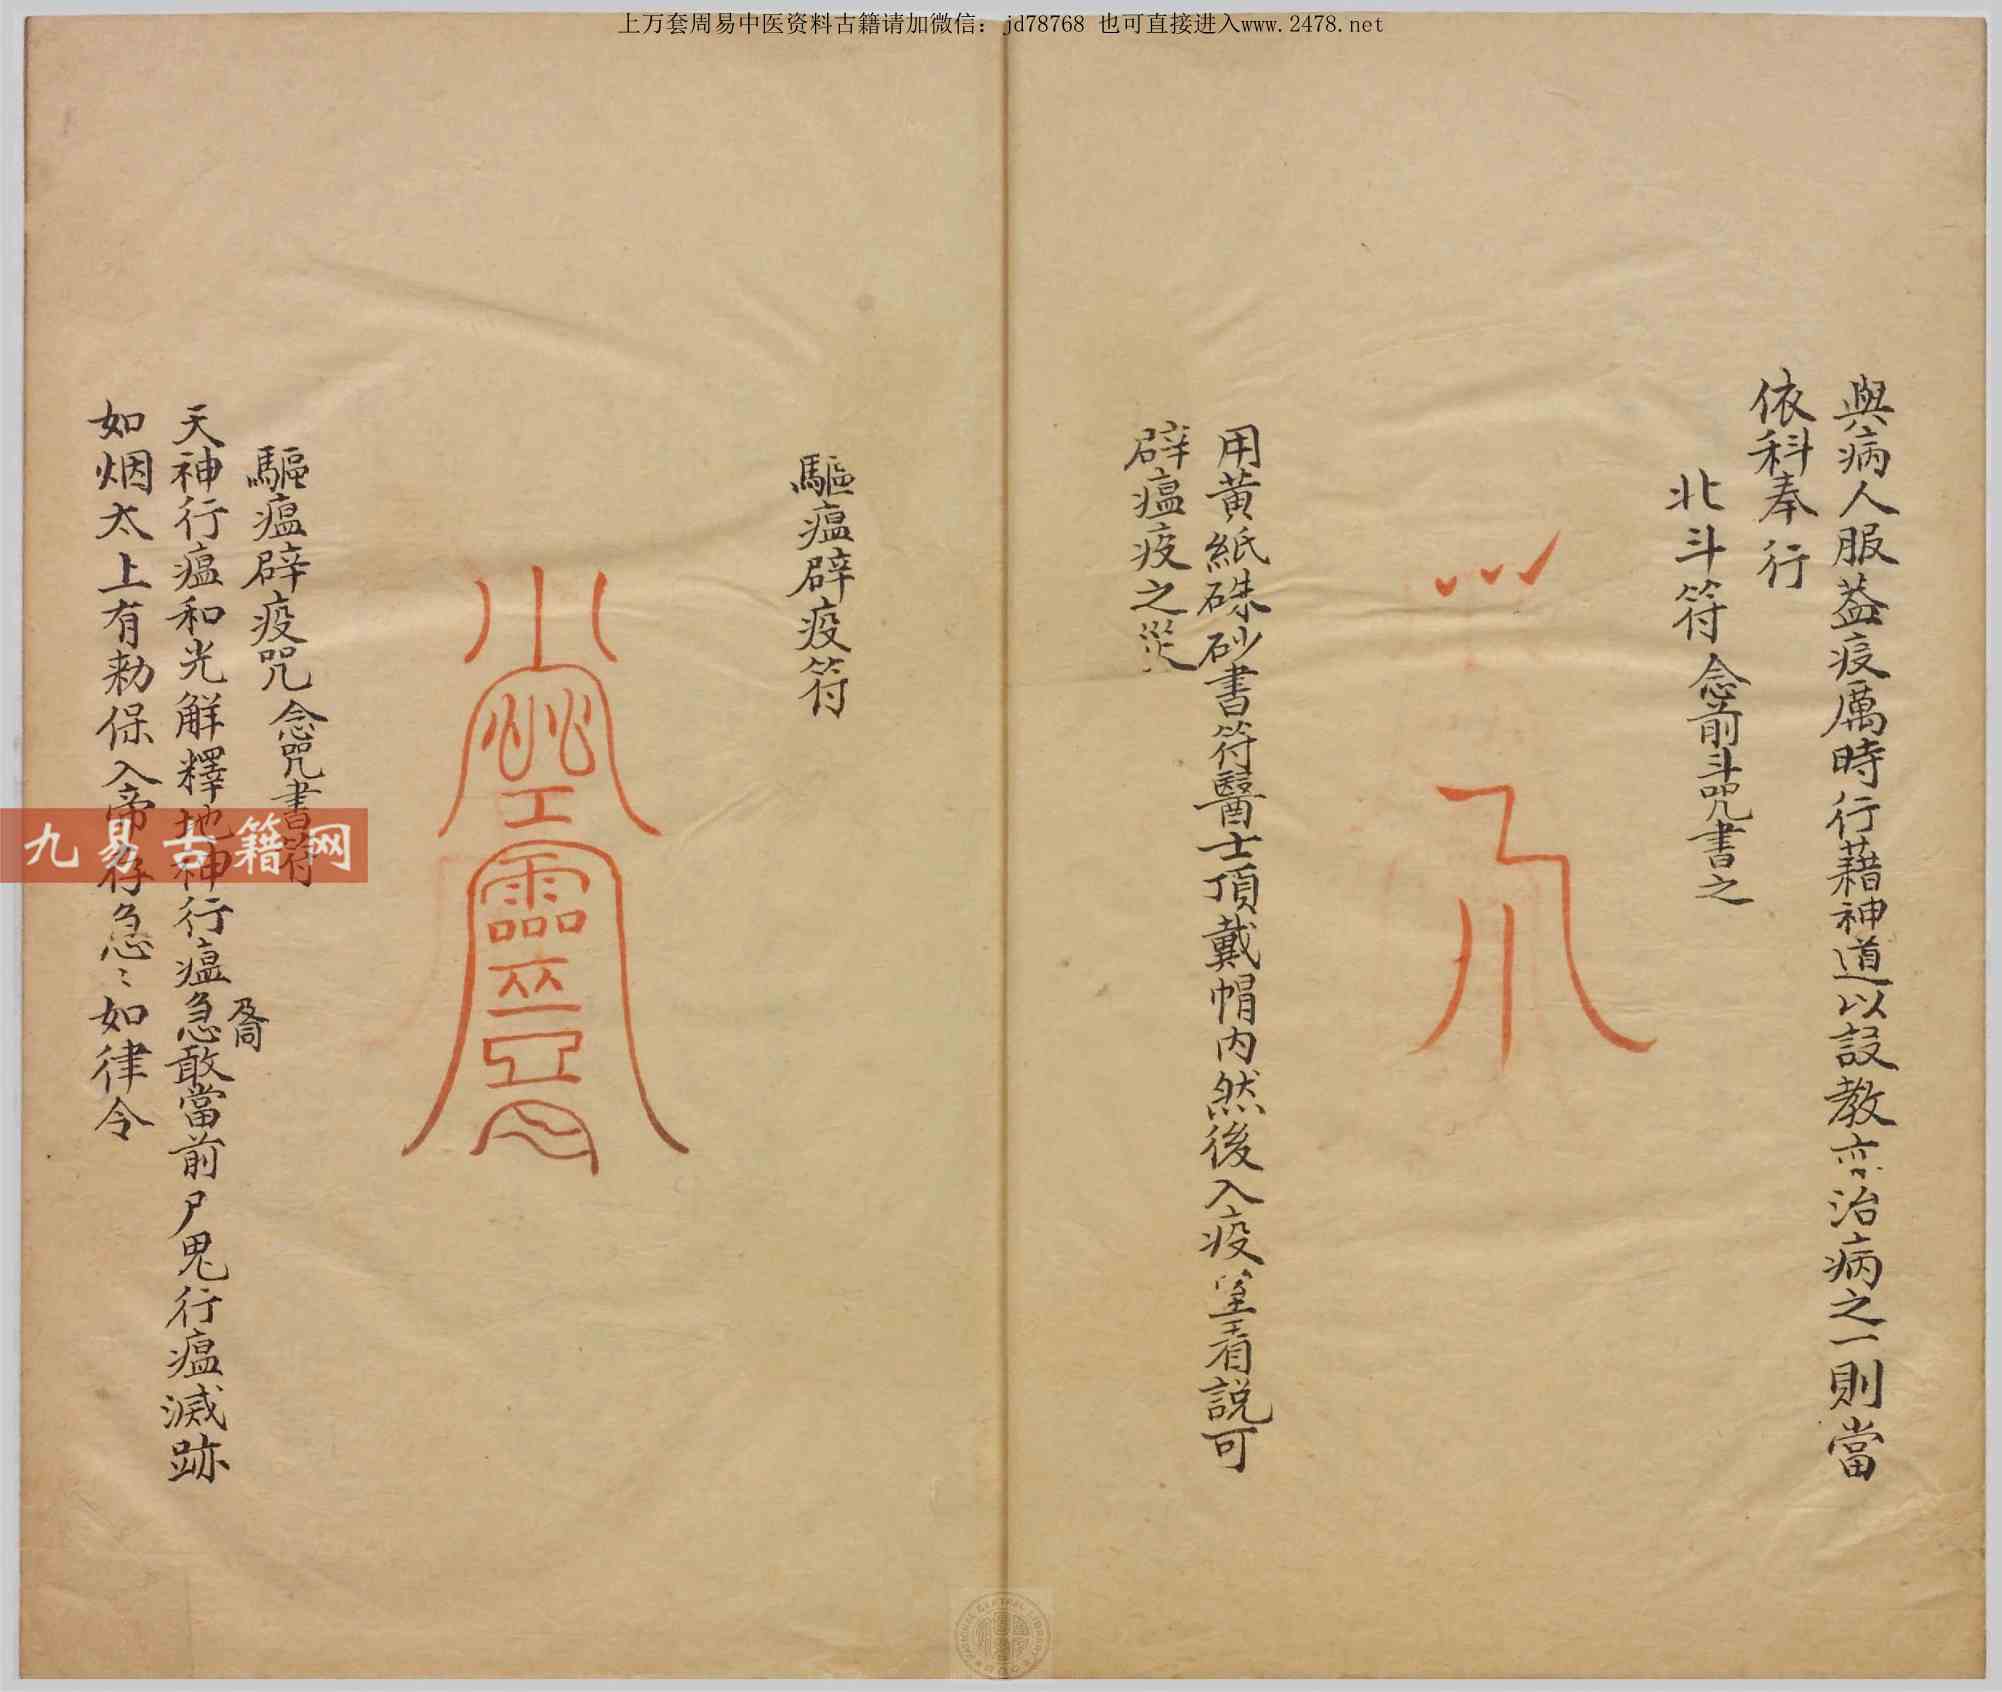 上万套周易中医资料古籍请加微信：jd78768 也可直接进入www.2478.net
與病人服葢疫厲時行藉神道以設教亦治病之一則當
依科奉行
北斗符 念前斗咒書之
用黄紙硃砂書符醫士頂戴帽内然後入疫 看説可
辟瘟疫之災
驅瘟辟疫符
驅瘟辟疫咒 念咒書符
天神行瘟和光解釋地神行瘟急敢當前尸鬼行瘟滅跡
如烟太上有勑保入帝存急〻如律令
九易古籍网
NATIONAL CENTRAL LIBRARY